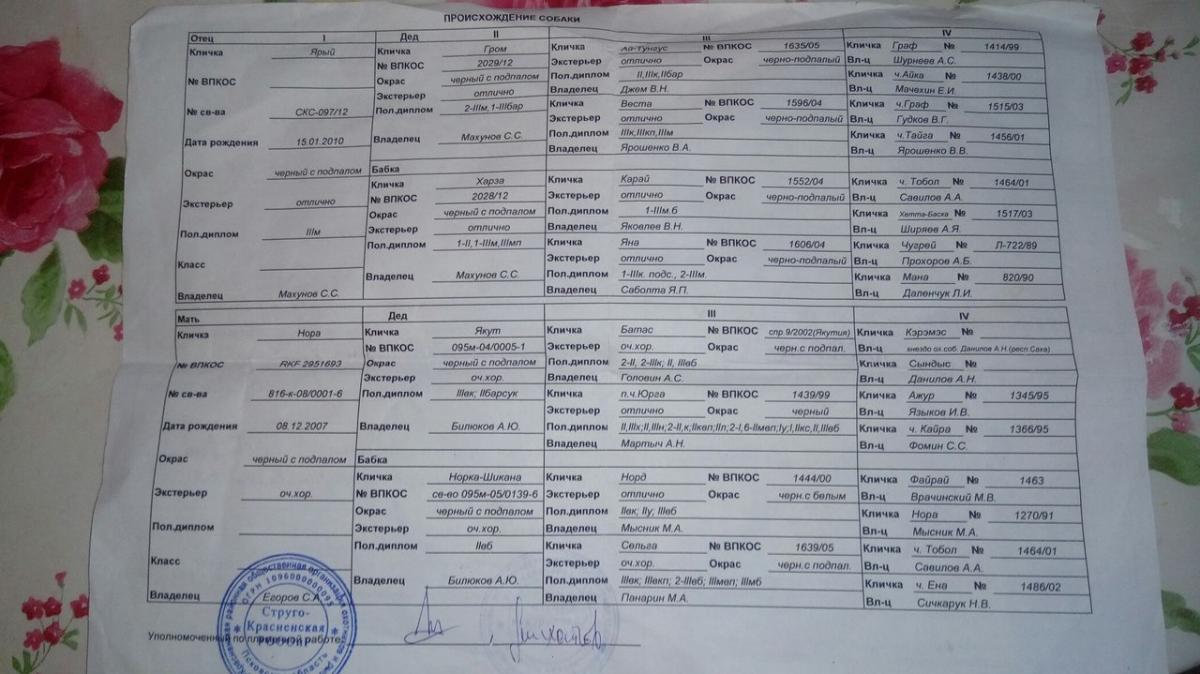 ПРОИСХОЖДЕНИЕ СОБАКИ
Отец I Дед II III IV
Кличка Ярый
№ ВПКОС
№ св-ва СКС-097/12
Дата рождения 15.01.2010
Окрас черный с подпалом
Экстерьер отлично
Пол.диплом IIIм
Класс
Владелец Махунов С.С.
Кличка Гром
№ ВПКОС 2029/12
Окрас черный с подпалом
Экстерьер отлично
Пол.диплом 2-IIIм,1-IIIбар
Владелец Махунов С.С.
Бабка
Кличка Харза
№ ВПКОС 2028/12
Окрас черный с подпалом
Экстерьер отлично
Пол.диплом 1-II,1-IIIм,IIIмп
Владелец Махунов С.С.
Кличка № ВПКОС 1635/05
Экстерьер отлично Окрас черно-подпалый
Пол.диплом II,IIIк,IIбар
Владелец Джем В.Н.
Кличка Веста № ВПКОС 1596/04
Экстерьер отлично Окрас черно-подпалый
Пол.диплом IIIк,IIIкп,IIIм
Владелец Ярошенко В.А.
Кличка Карай № ВПКОС 1552/04
Экстерьер отлично Окрас черно-подпалый
Пол.диплом 1-IIIм.б
Владелец Яковлев В.Н.
Кличка Яна № ВПКОС 1606/04
Экстерьер отлично Окрас черно-подпалый
Пол.диплом 1-IIIк. подс., 2-IIIм.
Владелец Саболта Я.П.
Кличка Граф № 1414/99
Вл-ц Шурнеев А.С.
Кличка ч.Айка № 1438/00
Вл-ц Мачехин Е.И.
Кличка ч.Граф № 1515/03
Вл-ц Гудков В.Г.
Кличка ч.Тайга № 1456/01
Вл-ц Ярошенко В.В.
Кличка ч. Тобол № 1464/01
Вл-ц Савилов А.А.
Кличка Хетта-Баска № 1517/03
Вл-ц Ширяев А.Я.
Кличка Чуагей № Л-722/89
Вл-ц Прохоров А.Б.
Кличка Мана № 820/90
Вл-ц Даленчук Л.И.
Мать Дед III IV
Кличка Нора
№ ВПКОС RKF 2951693
№ св-ва 816-к-08/0001-6
Дата рождения 08.12.2007
Окрас черный с подпалом
Экстерьер оч.хор.
Пол.диплом
Класс
Владелец Егоров С.А.
Кличка Якут
№ ВПКОС 095м-04/0005-1
Окрас черный с подпалом
Экстерьер оч.хор.
Пол.диплом IIIвк; IIбарсук
Владелец Билюков А.Ю.
Бабка
Кличка Норка-Шикана
№ ВПКОС св-во 095м-05/0139-6
Окрас черный с подпалом
Экстерьер оч.хор.
Пол.диплом IIвб
Владелец Билюков А.Ю.
Кличка Батас № ВПКОС спр.9/2002(Якутия)
Экстерьер оч.хор. Окрас черн.с подпал.
Пол.диплом 2-II, 2-IIIк; II, IIIвб
Владелец Головин А.С.
Кличка п.ч.Юрга № ВПКОС 1439/99
Экстерьер отлично Окрас черный
Пол.диплом
Владелец Мартыч А.Н.
Кличка Норд № ВПКОС 1444/00
Экстерьер отлично Окрас черн.с белым
Пол.диплом IIвк; IIу; IIIвб
Владелец Мысник М.А.
Кличка Сельга № ВПКОС 1639/05
Экстерьер оч.хор. Окрас черн.с подпал.
Пол.диплом IIIвк; IIIвкп; 2-IIвб; IIIмвп; IIIмб
Владелец Панарин М.А.
Кличка Кэрэмэс №
Вл-ц гнездо ох.соб. Данилов А.Н.(респ Саха)
Кличка Сындыс №
Вл-ц Данилов А.Н.
Кличка Ажур № 1345/95
Вл-ц Языков И.В.
Кличка ч. Кайра № 1366/95
Вл-ц Фомин С.С.
Кличка Файрай № 1463
Вл-ц Врачинский М.В.
Кличка Нора № 1270/91
Вл-ц Мысник М.А.
Кличка ч. Тобол № 1464/01
Вл-ц Савилов А.А.
Кличка ч. Ена № 1486/02
Вл-ц Сичкарук Н.В.
Уполномоченный по племенной работе
районная общественная организация охотников и
ОГРН 1096000000095
Струго-
Красненская
РОООиР
Псковская область